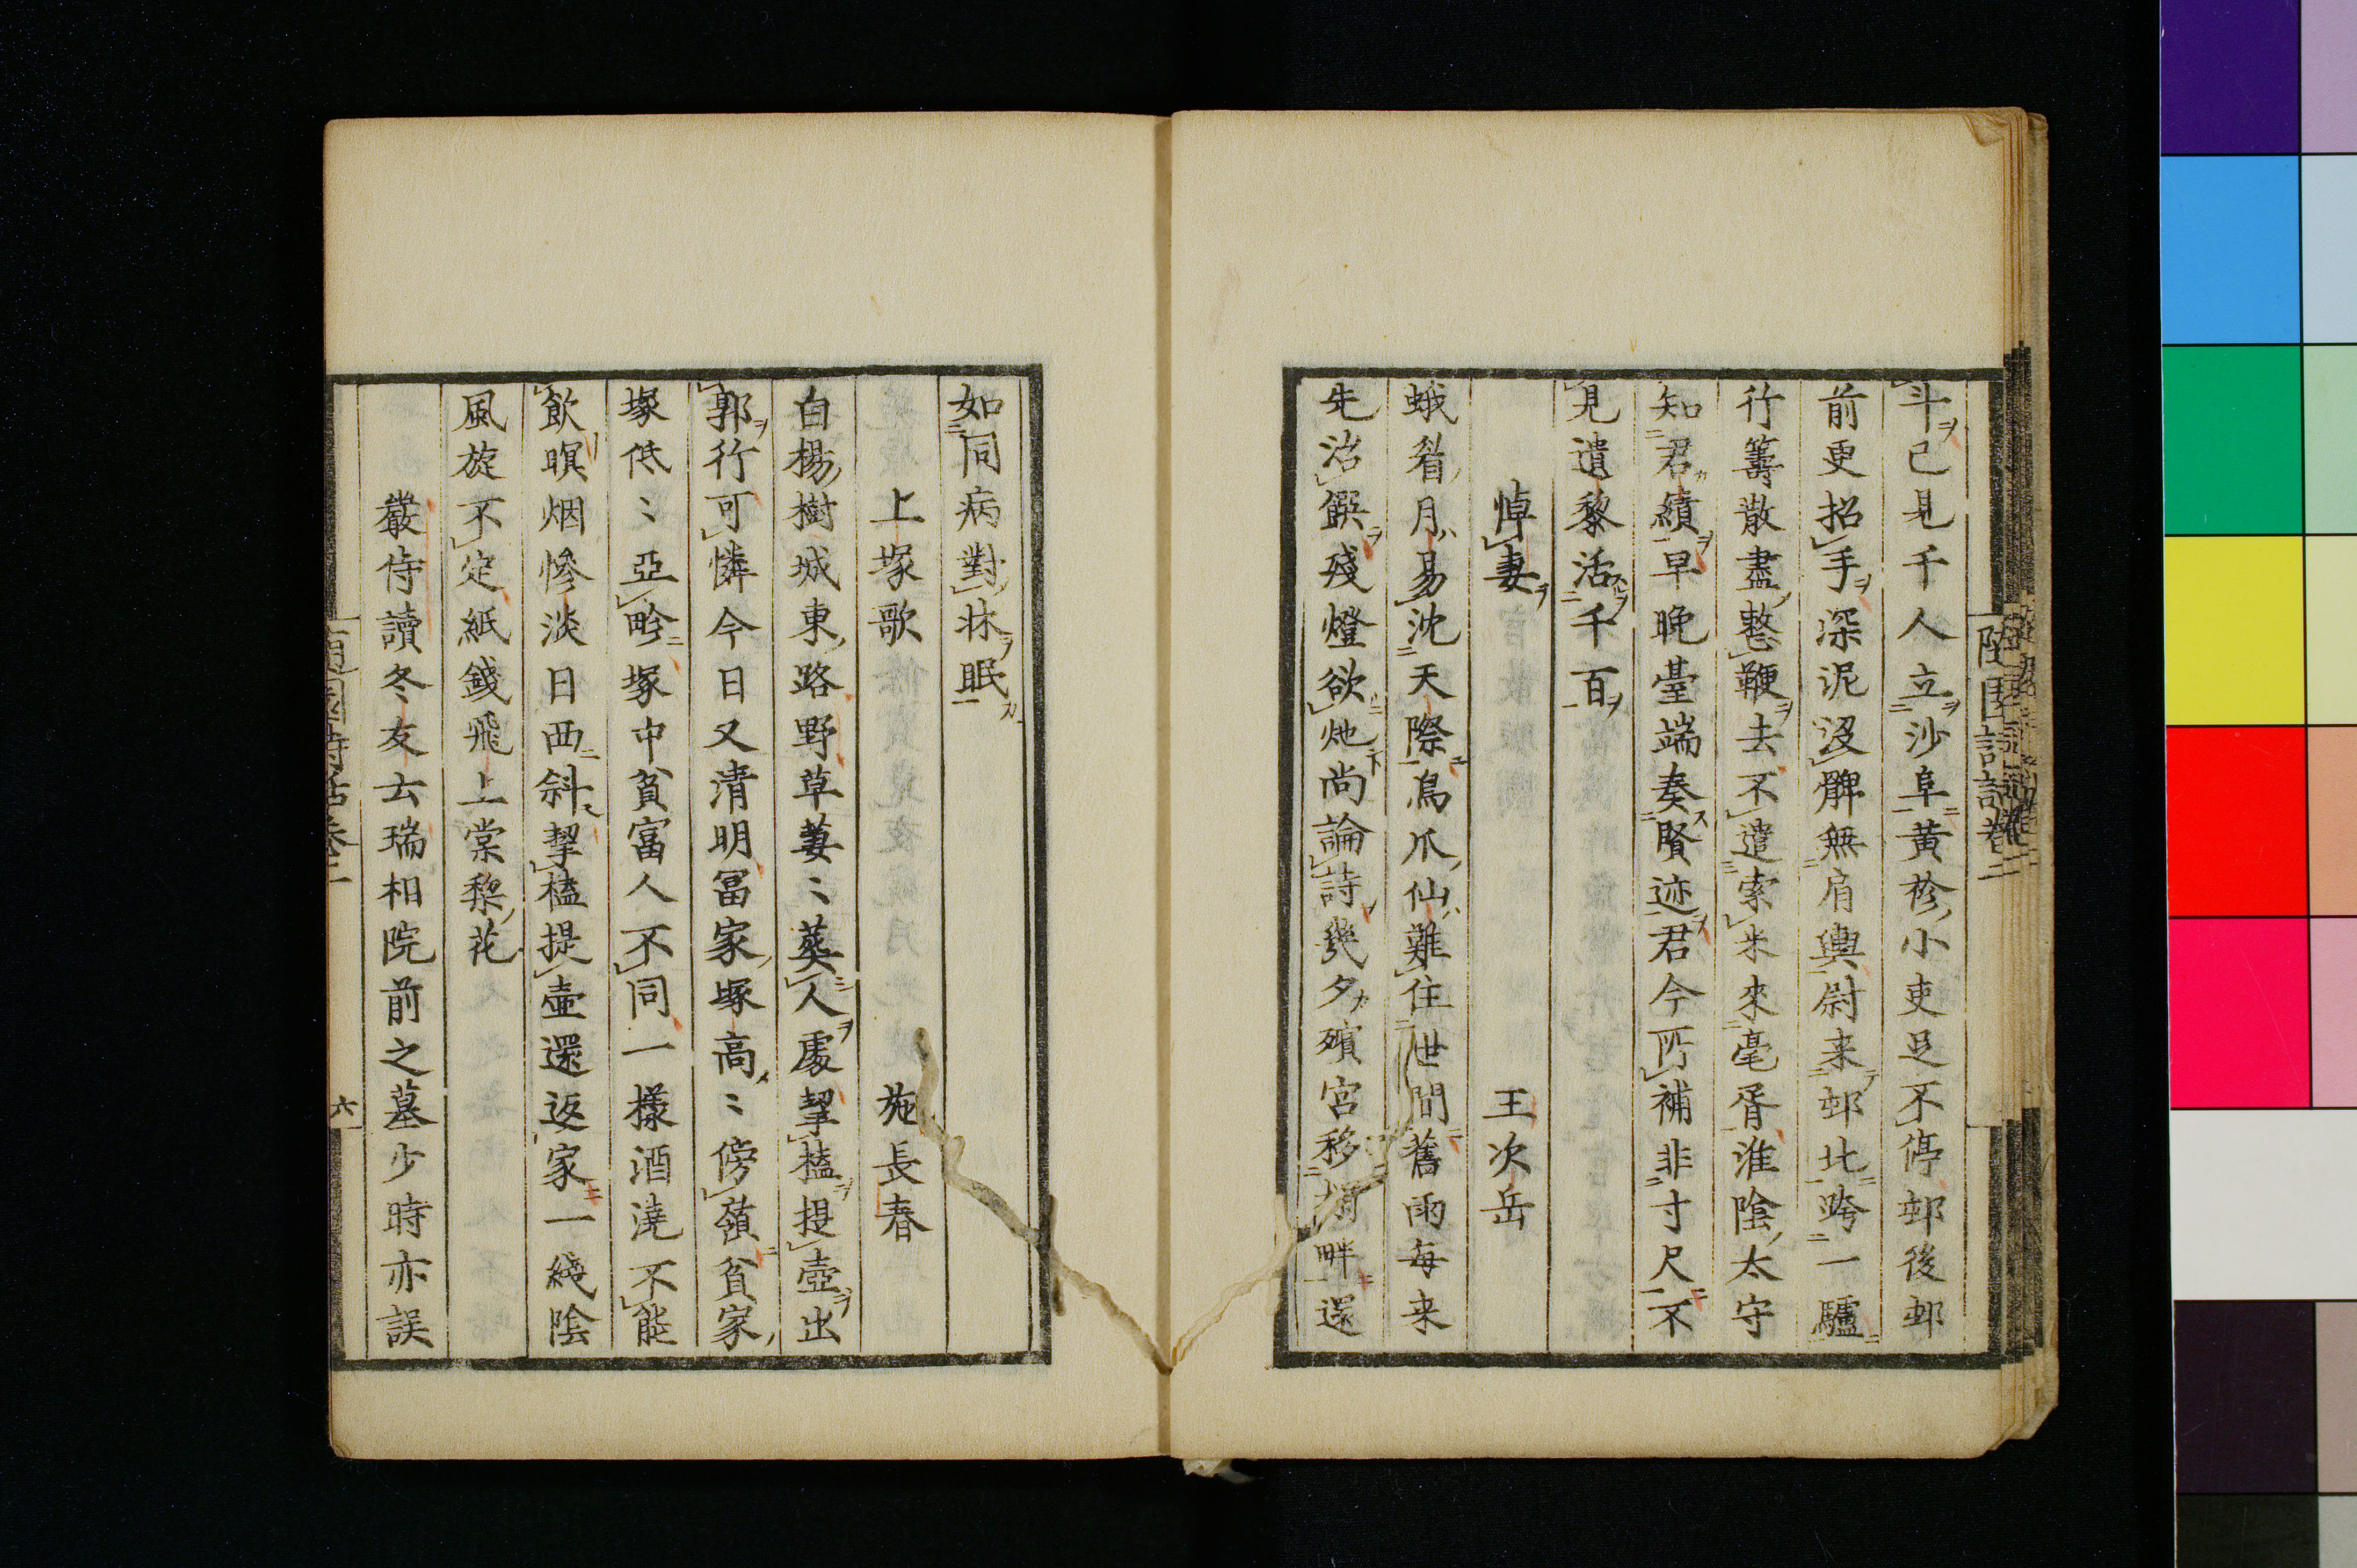 斗已見千人立沙阜黄袗小吏足不停邨後邨
前更招手深泥沒髀無肩輿尉来邨北跨一驢
行籌散盡整鞭去不遣索米來毫胥淮陰太守
知君績早晩臺端奏賢迹君今所補非寸尺不
見遺黎活千百
悼妻 王次岳
蛾眉月易沈天際鳥爪仙難住世間舊雨每来
先治饌殘燈欲灺尚論詩幾夕殯宮移 畔還
如同病對牀眠
上塚歌 施長春
白楊樹城東路野草萋〻葬人處挈榼提壺出
郭行可憐今日又清明富家塚高〻傍嶺貧家
塚低〻亞畛塚中貧富人不同一樣酒澆不能
飲暝烟慘淡日西斜挈榼提壷還返家一綫陰
風旋不定紙錢飛上棠梨花
嚴侍讀冬友云瑞相院前之墓少時亦誤
六